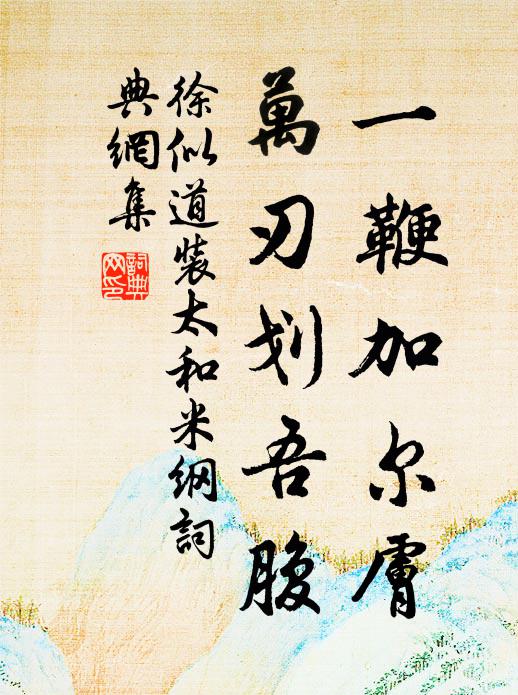 一鞭加尔膚
萬刃划吾腹
徐似道裝太和米纲詞
典網集
詞典
网印